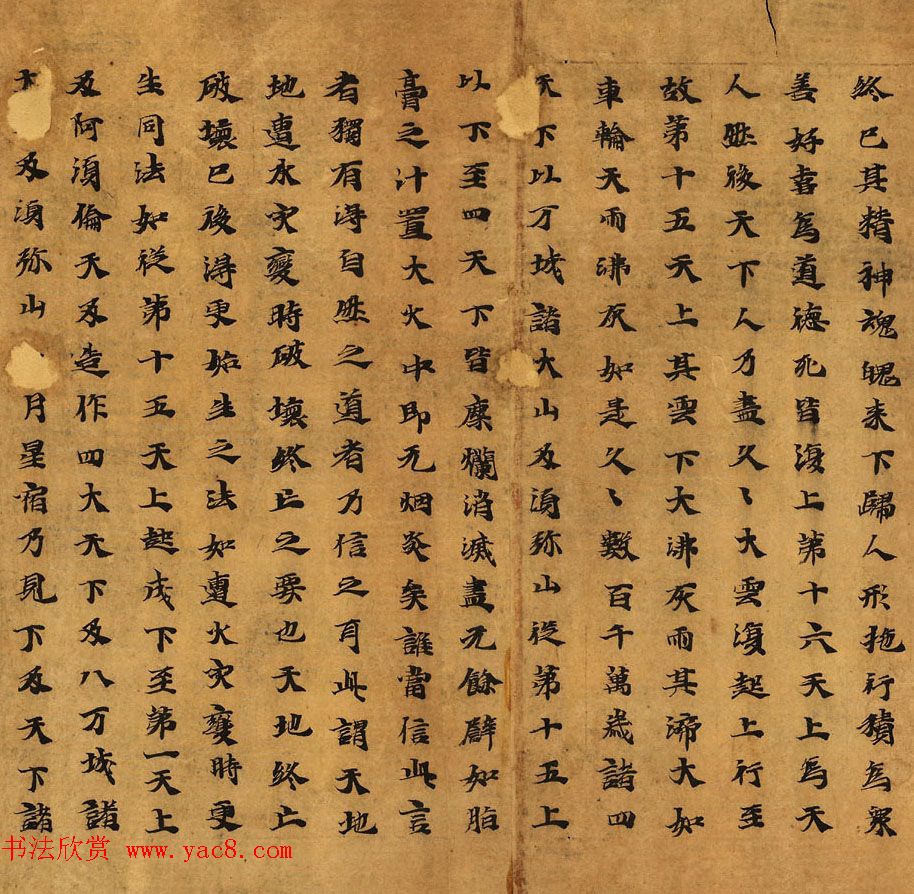 終已其精神魂魄来下歸人形拖行積為衆
善好喜為道德死皆復上第十六天上為天
人㸐後天下人乃盡久〻大雲復起上行至
故第十五天上其雲下大沸灰雨其渧大如
車輪天雨沸灰如是久〻數百千萬歲諸四
天下以万城諸大山及湏弥山從第十五上
以下至四天下皆糜爛消滅盡无餘辟如脂
膏之汁置大火中即无烟炎矣誰當信此言
者獨有淂自㸐之道者乃信之耳此謂天地
地遭水灾變時破壞終亡之要也天地終亡
破壞已後淂更始生之法如遭火灾變時更
生同法如從第十五天上起成下至第一天上
及阿湏倫天及造作四大天下及八万城諸
大及湏弥山月星宿乃見下及天下諸
书法欣赏 www.yac8.com